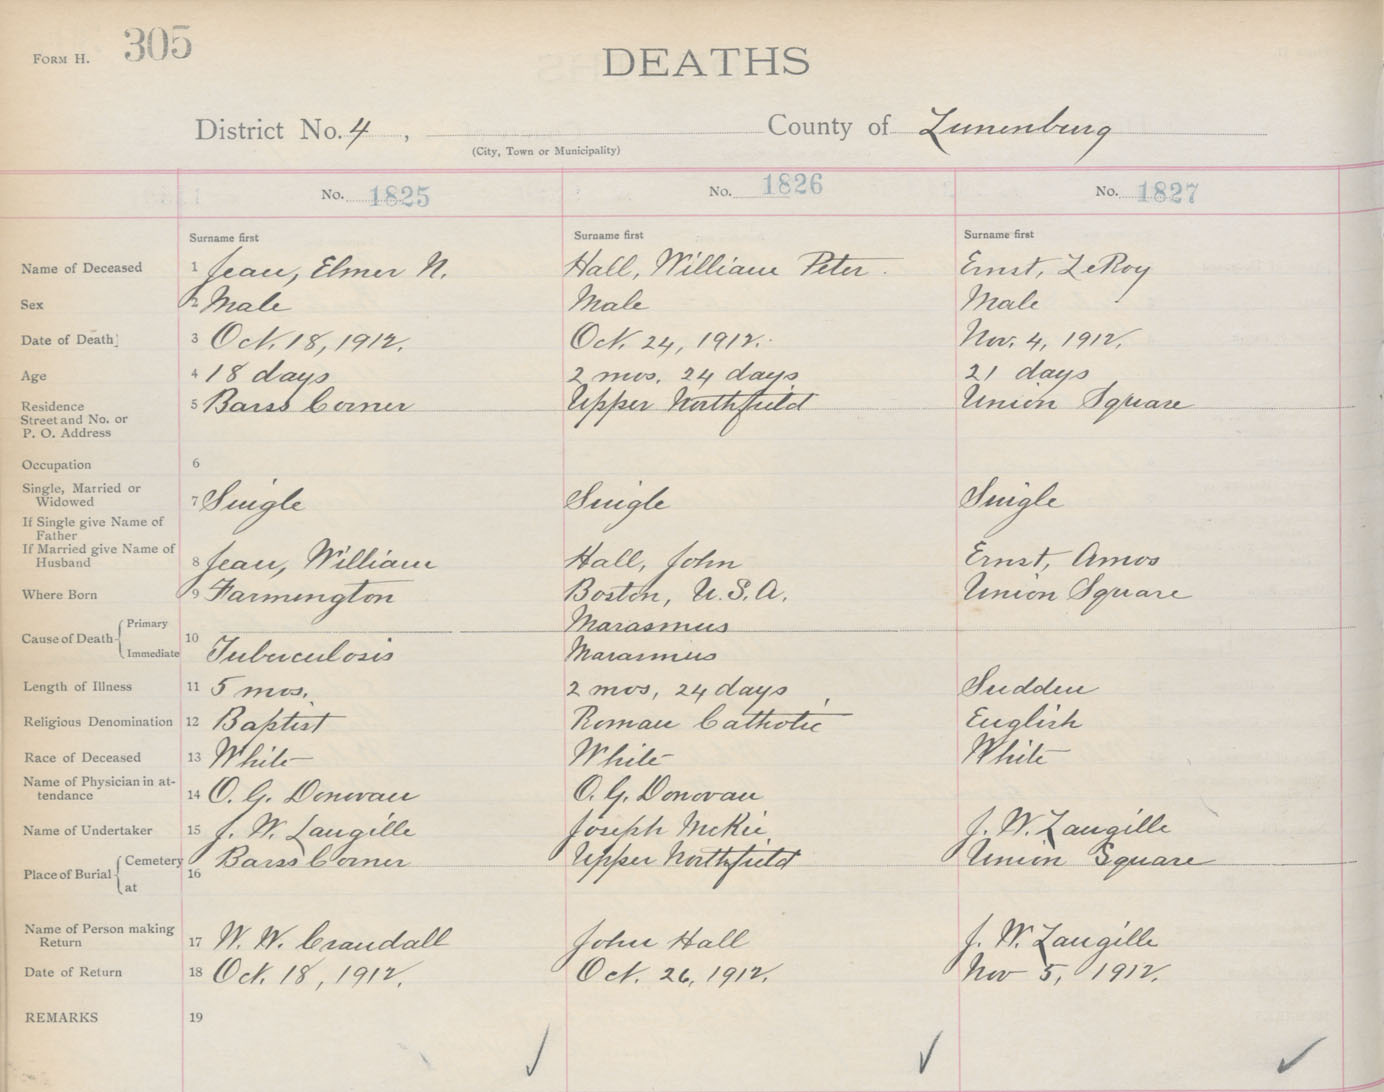 FORM H. 305
DEATHS
District No. 4, County of Lunenburg
(City, Town or Municipality)
No. 1825 No. 1826 No. 1827
Surname first Surname first Surname first
Name of Deceased 1 Jeau, Elmer N. Hall, William Peter. Ernst, LeRoy
Sex 2 Male Male Male
Date of Death 3 Oct. 18, 1912. Oct. 24, 1912. Nov. 4, 1912.
Age 4 18 days 2 mos. 24 days 21 days
Residence 5 Barss Corner Upper Northfield Union Square
Street and No. or
P. O. Address
Occupation 6
Single, Married or
Widowed 7 Single Single Single
If Single give Name of
Father
If Married give Name of
Husband 8 Jeau, William Hall, John Ernst, Amos
Where Born 9 Farmington Boston, U.S.A. Union Square
Cause of Death Primary 10 Marasmus
Immediate Tuberculosis Marasmus
Length of Illness 11 5 mos. 2 mos, 24 days Sudden
Religious Denomination 12 Baptist Roman Catholic English
Race of Deceased 13 White White White
Name of Physician in at-
tendance 14 O. G. Donovan O. G. Donovan
Name of Undertaker 15 J. W. Langille Joseph McKie J. W. Langille
Place of Burial Cemetery 16 Barss Corner Upper Northfield Union Square
at
Name of Person making
Return 17 W. W. Crandall John Hall J. W. Langille
Date of Return 18 Oct. 18, 1912. Oct. 26, 1912. Nov 5, 1912.
REMARKS 19